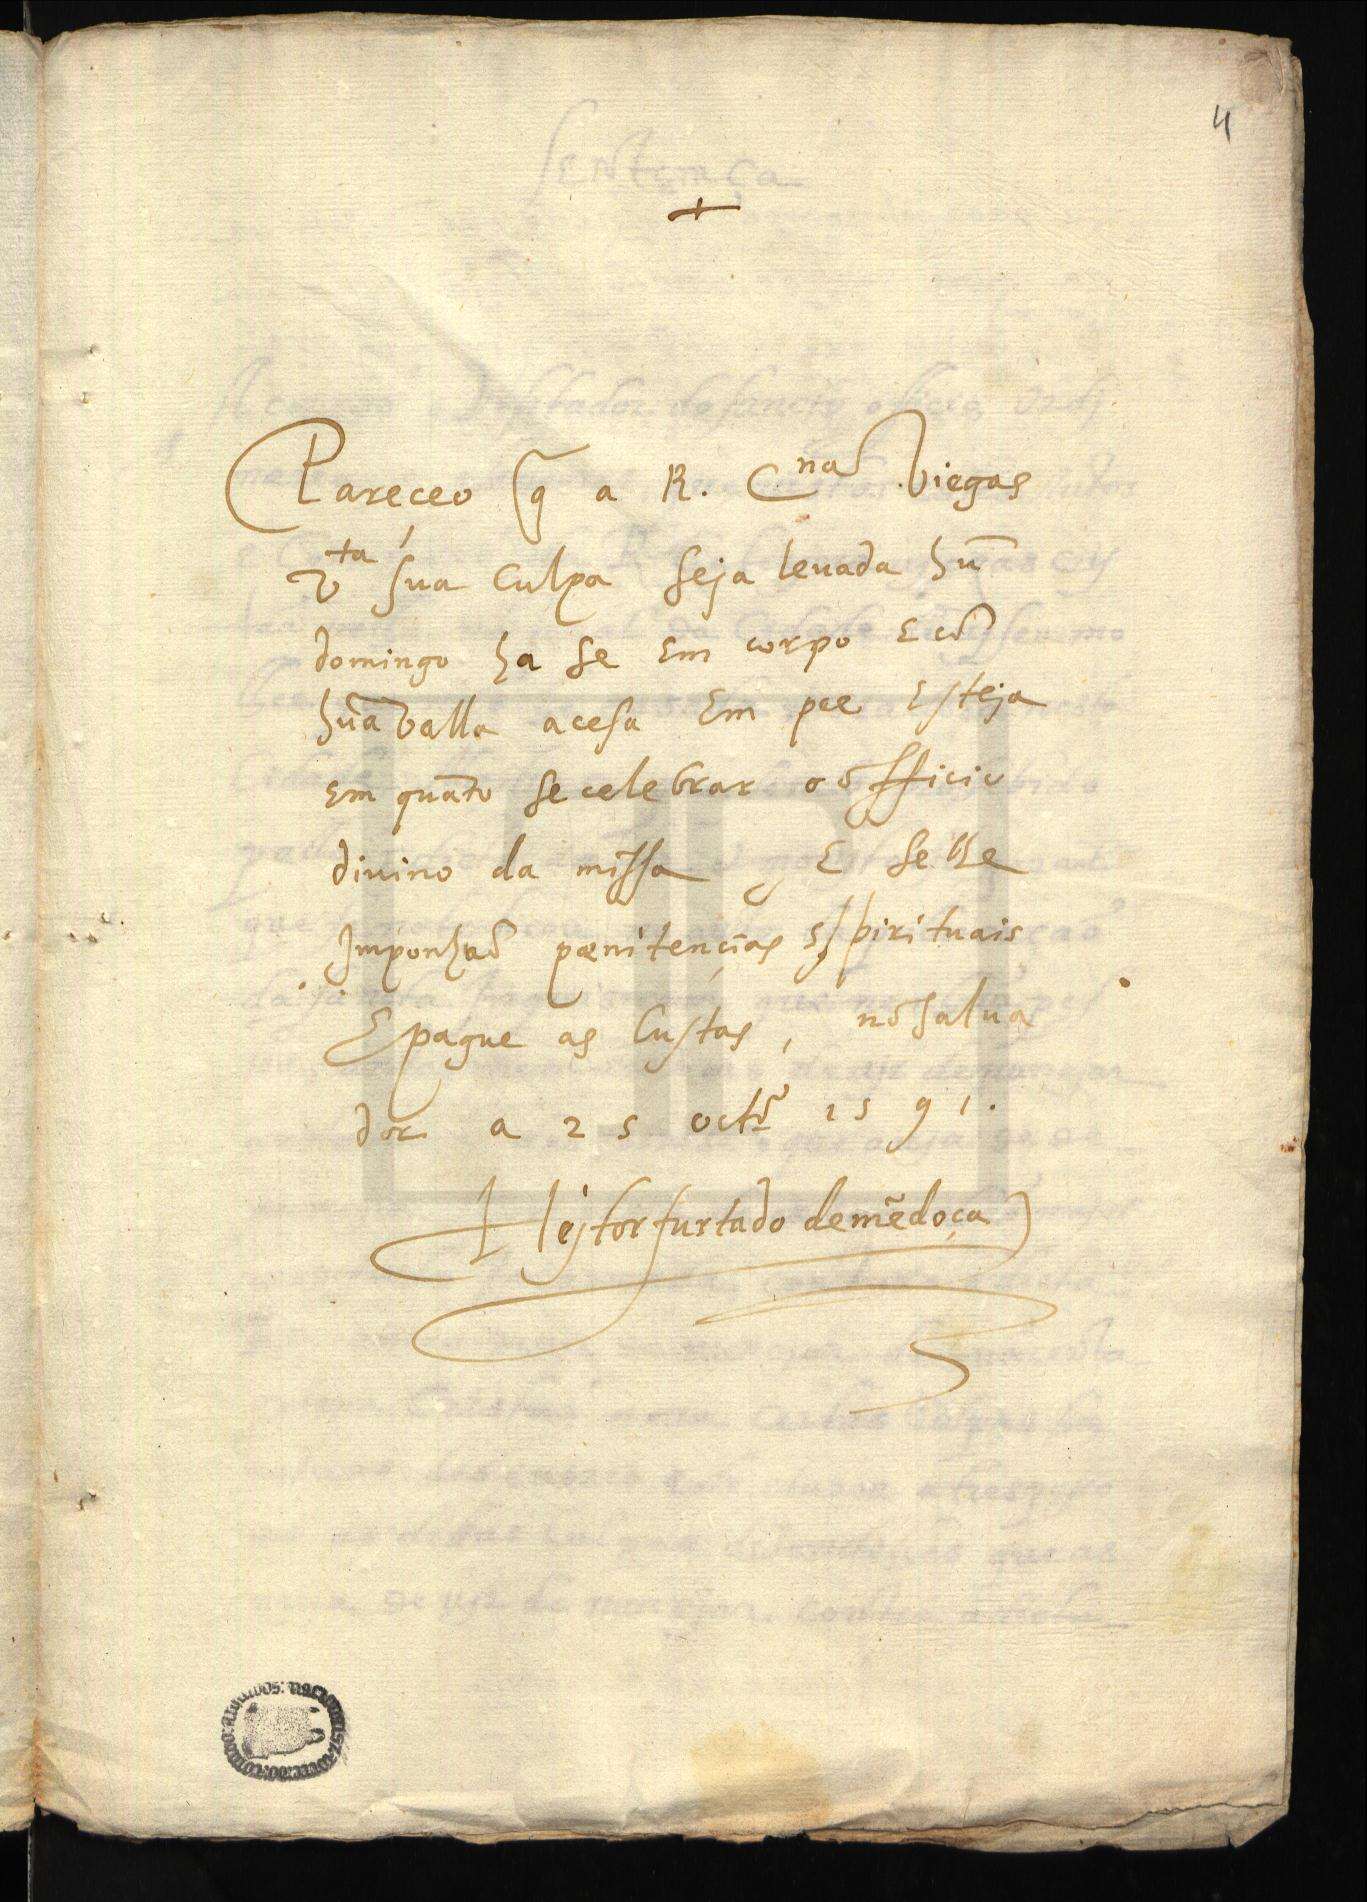 4
+
Pareceo q̃ a R. Cna Viegas
vta sua culpa seja levada hũ
domingo ha se em corpo e cõ
hũa vella acesa em pee esteja
em quãto se celebrar o officio
divino da missa, e se lhe
imponhaõ pœnitençias spirituais
e pague as custas, no salva
dor a 25 octro 1591.
Heitor furtado de mẽdoça